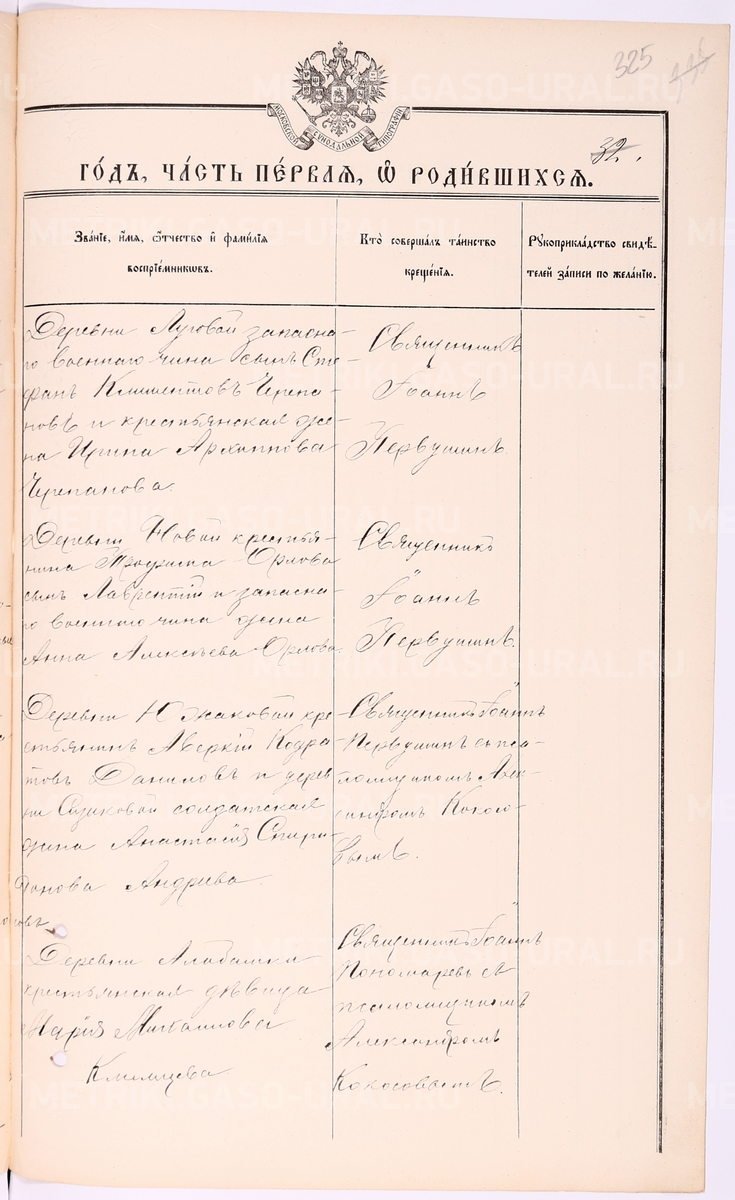 325
32.
МОСКОВСКОЙ СѴНОДАЛЬНОЙ ТИПОГРАФІИ
ГО́ДЪ, ЧА́СТЬ ПЕ́РВАЯ, Ѡ҆ РОДИ́ВШИХСЯ.
Зва́нїе, и҆́мя, ѻ҆́тчество и҆ фами́лїя
воспрїе́мникѡвъ.
Кто̀ соверша́лъ та́инство
креще́нїя.
Рꙋкоприкла́дство свидѣ́-
телей за́писи по жела́нїю.
Деревни Луговой запасна-
го военнаго чина сынъ Сте-
фанъ Климентовъ Черепа-
новъ и крестьянская же-
на Ирина Архиппова
Черепанова.
Священникъ
Іоаннъ
Первушинъ.
Деревни Новой крестья-
нина Трофима Орлова
сынъ Лаврентій и запасна-
го военнаго чина жена
Анна Алексѣева Орлова.
Священникъ
Іоаннъ
Первушинъ.
Деревни Южаковой кре-
стьянинъ Аверкій Кодра-
товъ Даниловъ и дерев
ни Сизиковой солдатская
жена Анастасія Спири-
донова Андрева.
Священникъ Іоаннъ
Первушинъ съ пса-
ломщикомъ Алек-
сандромъ
Деревни Алабашки
крестьянская дѣвица
Марія Михаилова
Священникъ Іоаннъ
Пономаревъ съ
псаломщикомъ
Александромъ
Колосовымъ.
METRIKI.GASO-URAL.RU